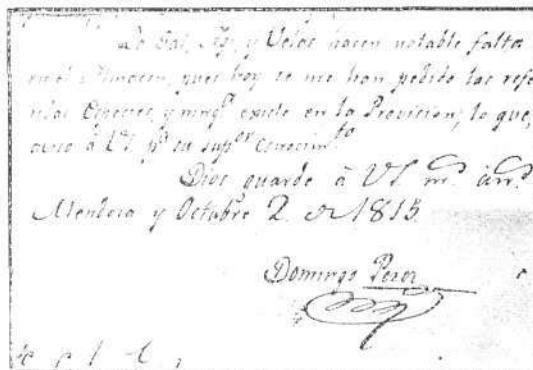 La Sal, Agi, y Velas hacen notable falta
en el Almacen, pues hoy se me han pedido las refe
ridas Especies, y ning.ª existe en la Provision, lo que,
aviso à V.S. p.ª su sup.or conocim.to
Dios guarde à VS. m.s an.s
Mendoza y Octubre 2. de 1815.
Domingo Perez